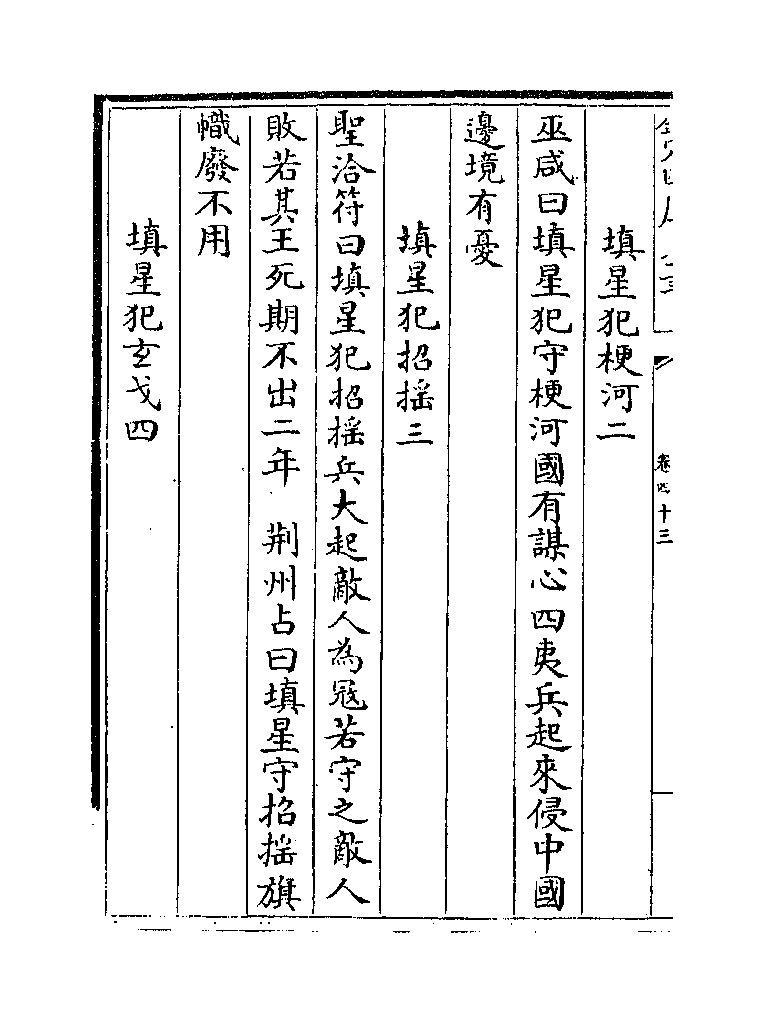 卷四十三
填星犯梗河二
巫咸曰填星犯守梗河國有謀心四夷兵起來侵中國
邊境有憂
填星犯招搖三
聖洽符曰填星犯招搖兵大起敵人為冦若守之敵人
敗若其王死期不出二年　荆州占曰填星守招搖旗
幟廢不用
填星犯玄戈四